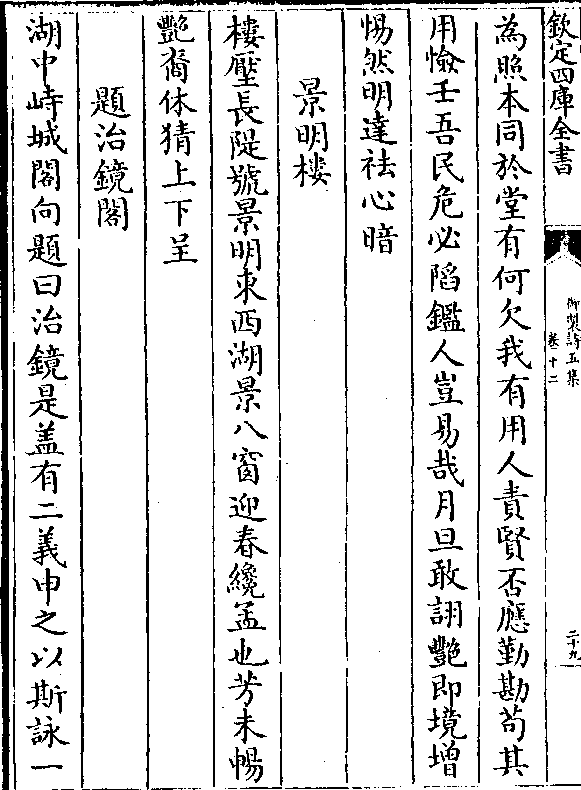 欽定四庫全書
御製詩五集
卷十二
二十九
為照本同於堂有何欠我有用人責賢否應勤勘苟其
用憸壬吾民危必陷鑑人豈易哉月旦敢詡艷即境增
惕然明達祛心暗
景明樓
樓壓長隄號景明東西湖景八窗迎春纔孟也芳未暢
艷裔休猜上下呈
題治鏡閣
湖中峙城閣向題曰治鏡是盖有二義申之以斯詠一